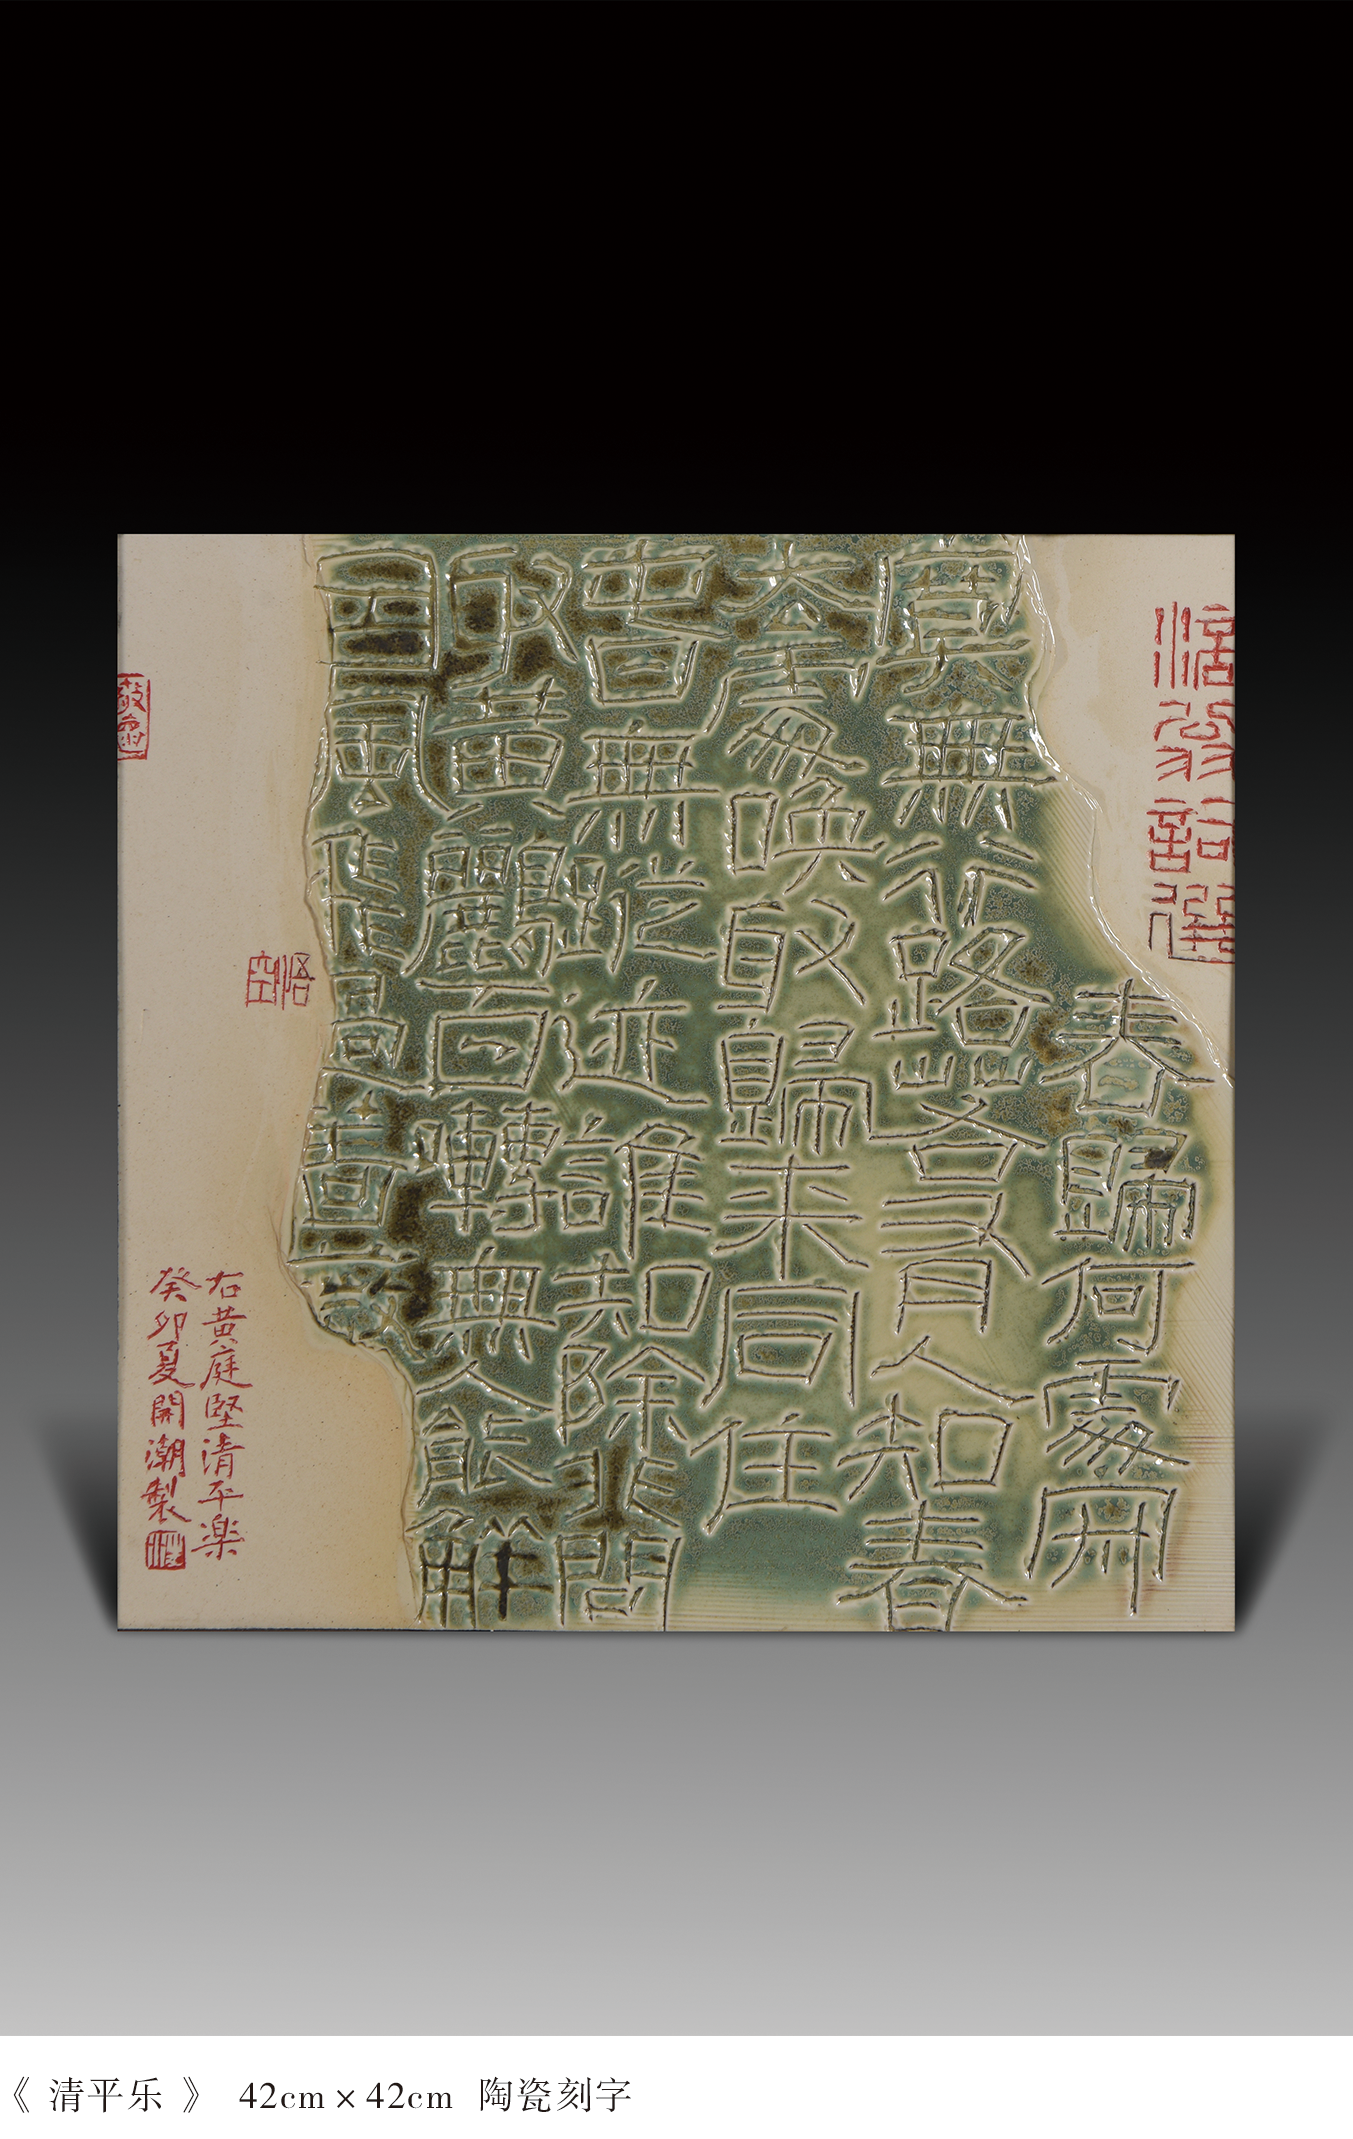 春歸何處寂
寞無行路若有人知春
去處喚取歸來同住
春無蹤迹誰知除非問
取黃鸝百囀無人能解
因風飛過薔薇
悟空
右黄庭堅清平楽
癸卯夏開潮製
《 清平乐 》 42cm×42cm 陶瓷刻字